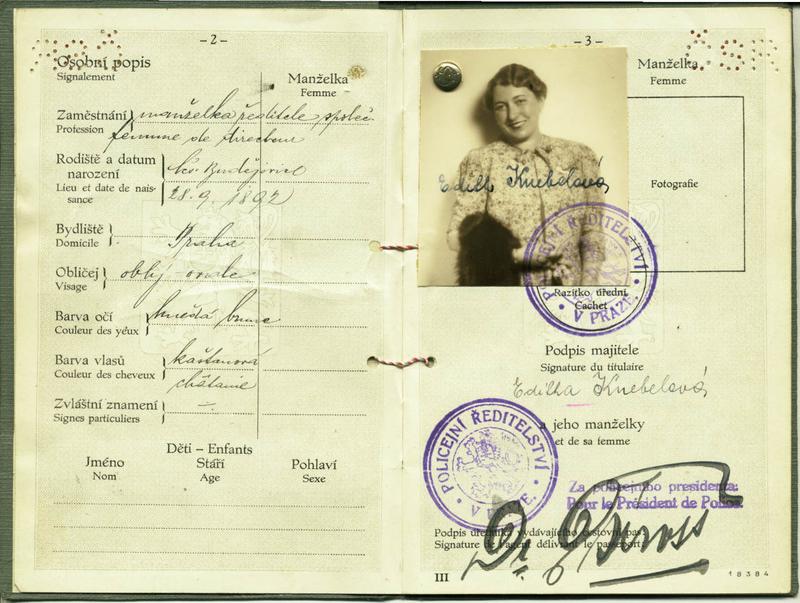 - 2 -
Osobní popis
Signalement
Manželka
Femme
Zaměstnání
Profession
manželka ředitele společ.
femme de directeur
Rodiště a datum narození
Lieu et date de naissance
Čes. Budějovice
28. 9. 1892
Bydliště
Domicile
Praha
Obličej
Visage
oblý ovale
Barva očí
Couleur des yeux
hnědá brune
Barva vlasů
Couleur des cheveux
kaštanová
châtaine
Zvláštní znamení
Signes particuliers
—
Děti – Enfants
Jméno
Nom
Stáří
Age
Pohlaví
Sexe
- 3 -
Manželka
Femme
Fotografie
Editha Knebelová
POLICEJNÍ ŘEDITELSTVÍ V PRAZE
Razítko úřední
Cachet
Podpis majitele
Signature du titulaire
Editha Knebelová
a jeho manželky
et de sa femme
POLICEJNÍ ŘEDITELSTVÍ V PRAZE
Za policejního presidenta:
Pour le Président de Police:
Podpis úředníka vydávajícího cestovní pas
Signature de l'agent délivrant le passeport
Dr.
III
18384